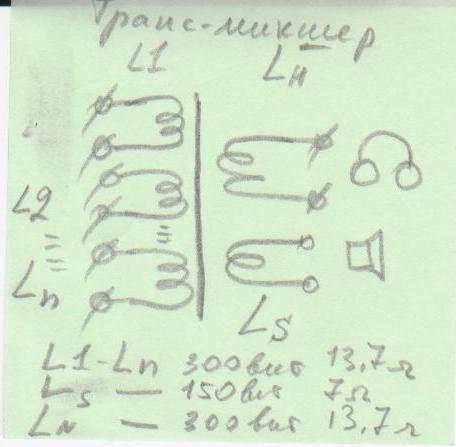 Транс-микшер
L1 Lн
L2
Ln
Ls
L1-Ln 300вит 13,7Ω
Ls — 150вит 7Ω
Lн — 300вит 13,7Ω